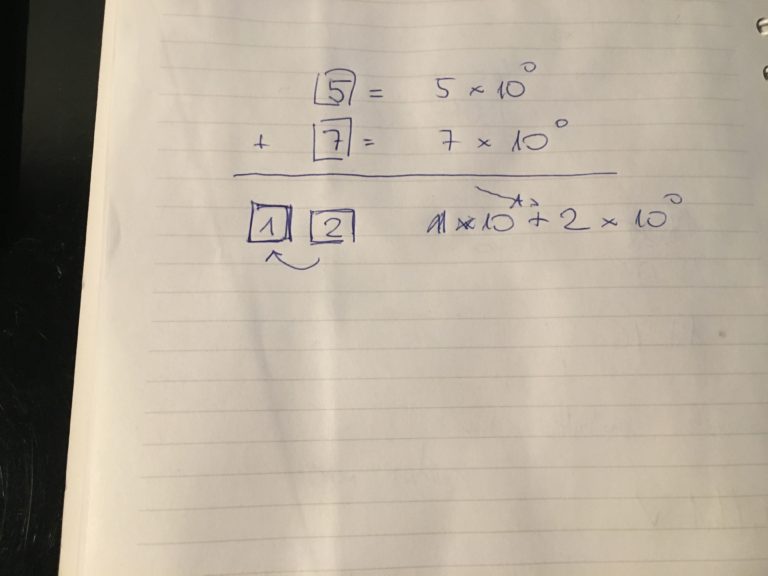 5 = 5 × 10⁰
+ 7 = 7 × 10⁰
1 2 1 × 10¹ + 2 × 10⁰